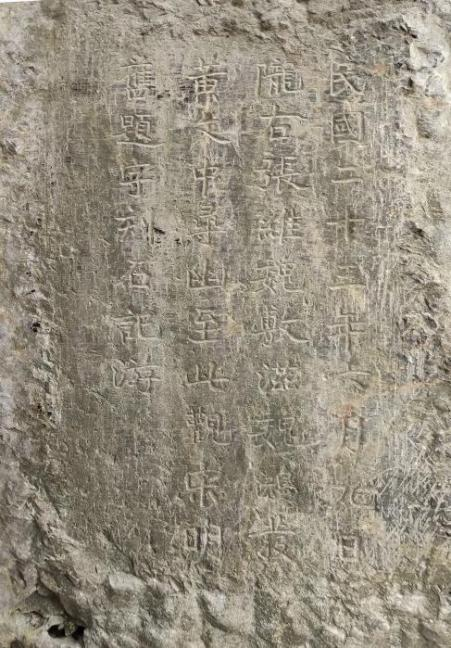 民國二十三年六月九日
隴右張維魏敷滋魏鴻發
黃文中尋幽至此觀宋明
舊題字刻石記游